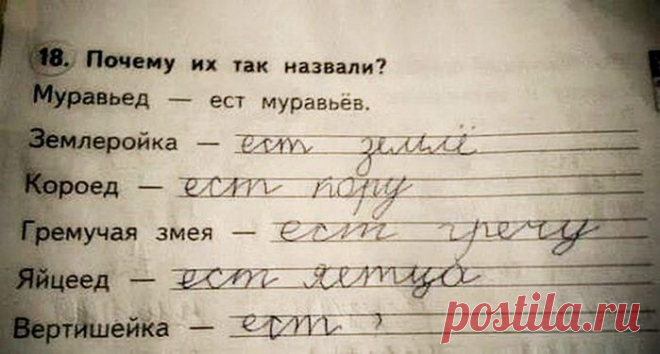 18. Почему их так назвали?
Муравьед — ест муравьёв.
Землеройка — ест землё
Короед — ест кору
Гремучая змея — ест гречу
Яйцеед — ест яетца
Вертишейка — ест ,
postila.ru